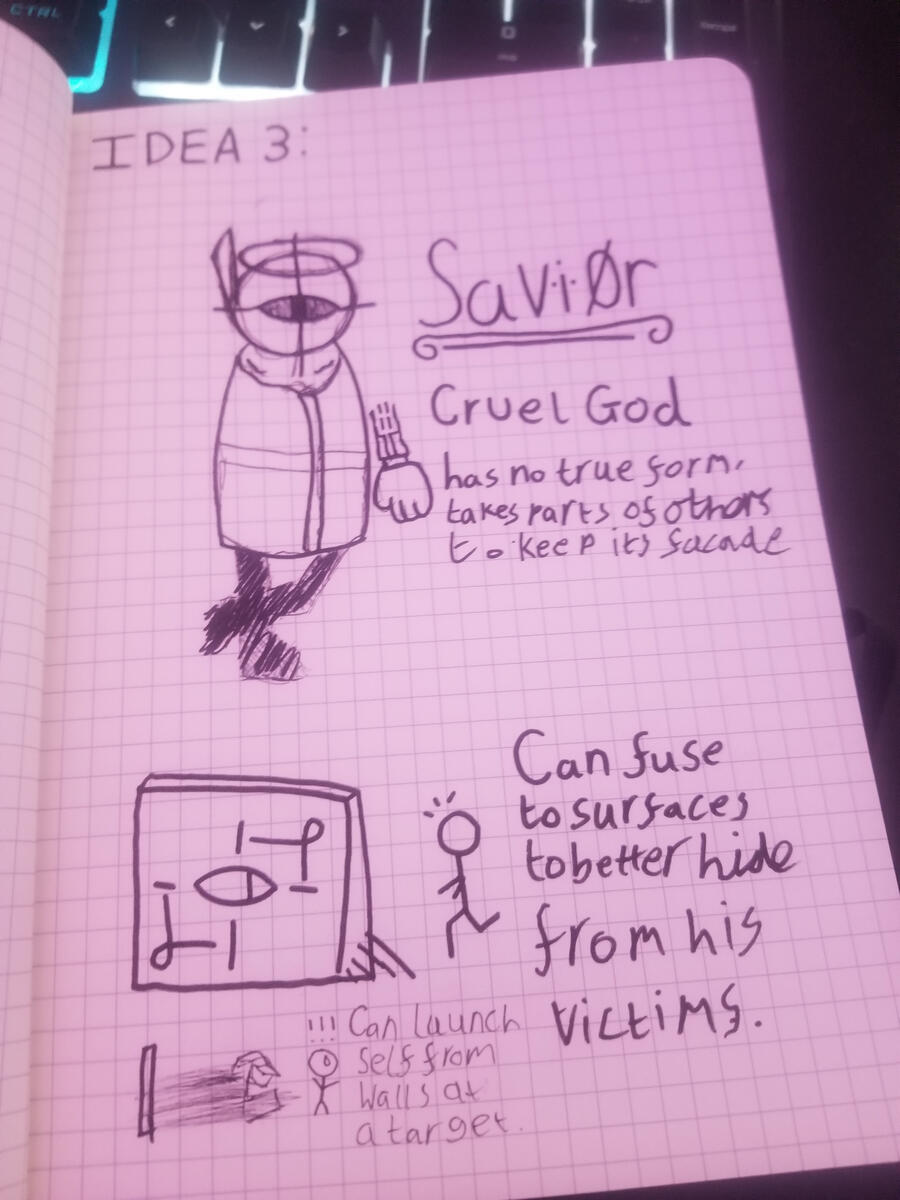 CTRL
IDEA 3:
Savi·Ør
Cruel God
has no true form,
takes parts of others
to keep its facade
Can fuse
to surfaces
to better hide
from his
victims.
!!! Can launch
self from
walls at
a target.